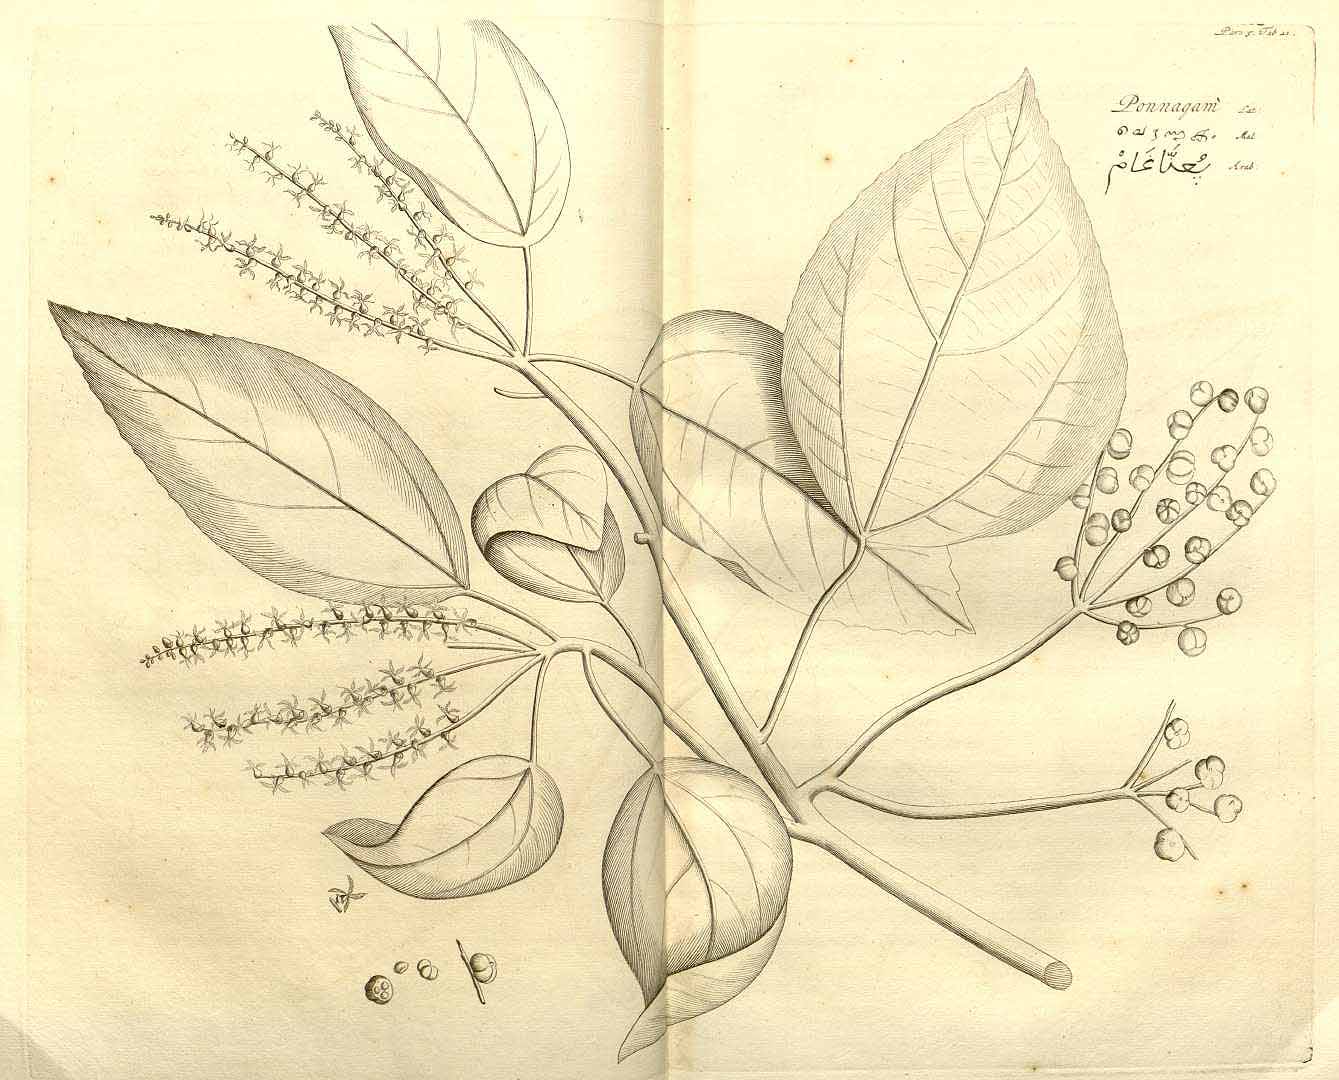 Pars 5. Tab 21.
Ponnagam̀ Lat.
പൊന്നഗം Mal.
پُعنَّاغَامْ Arab.